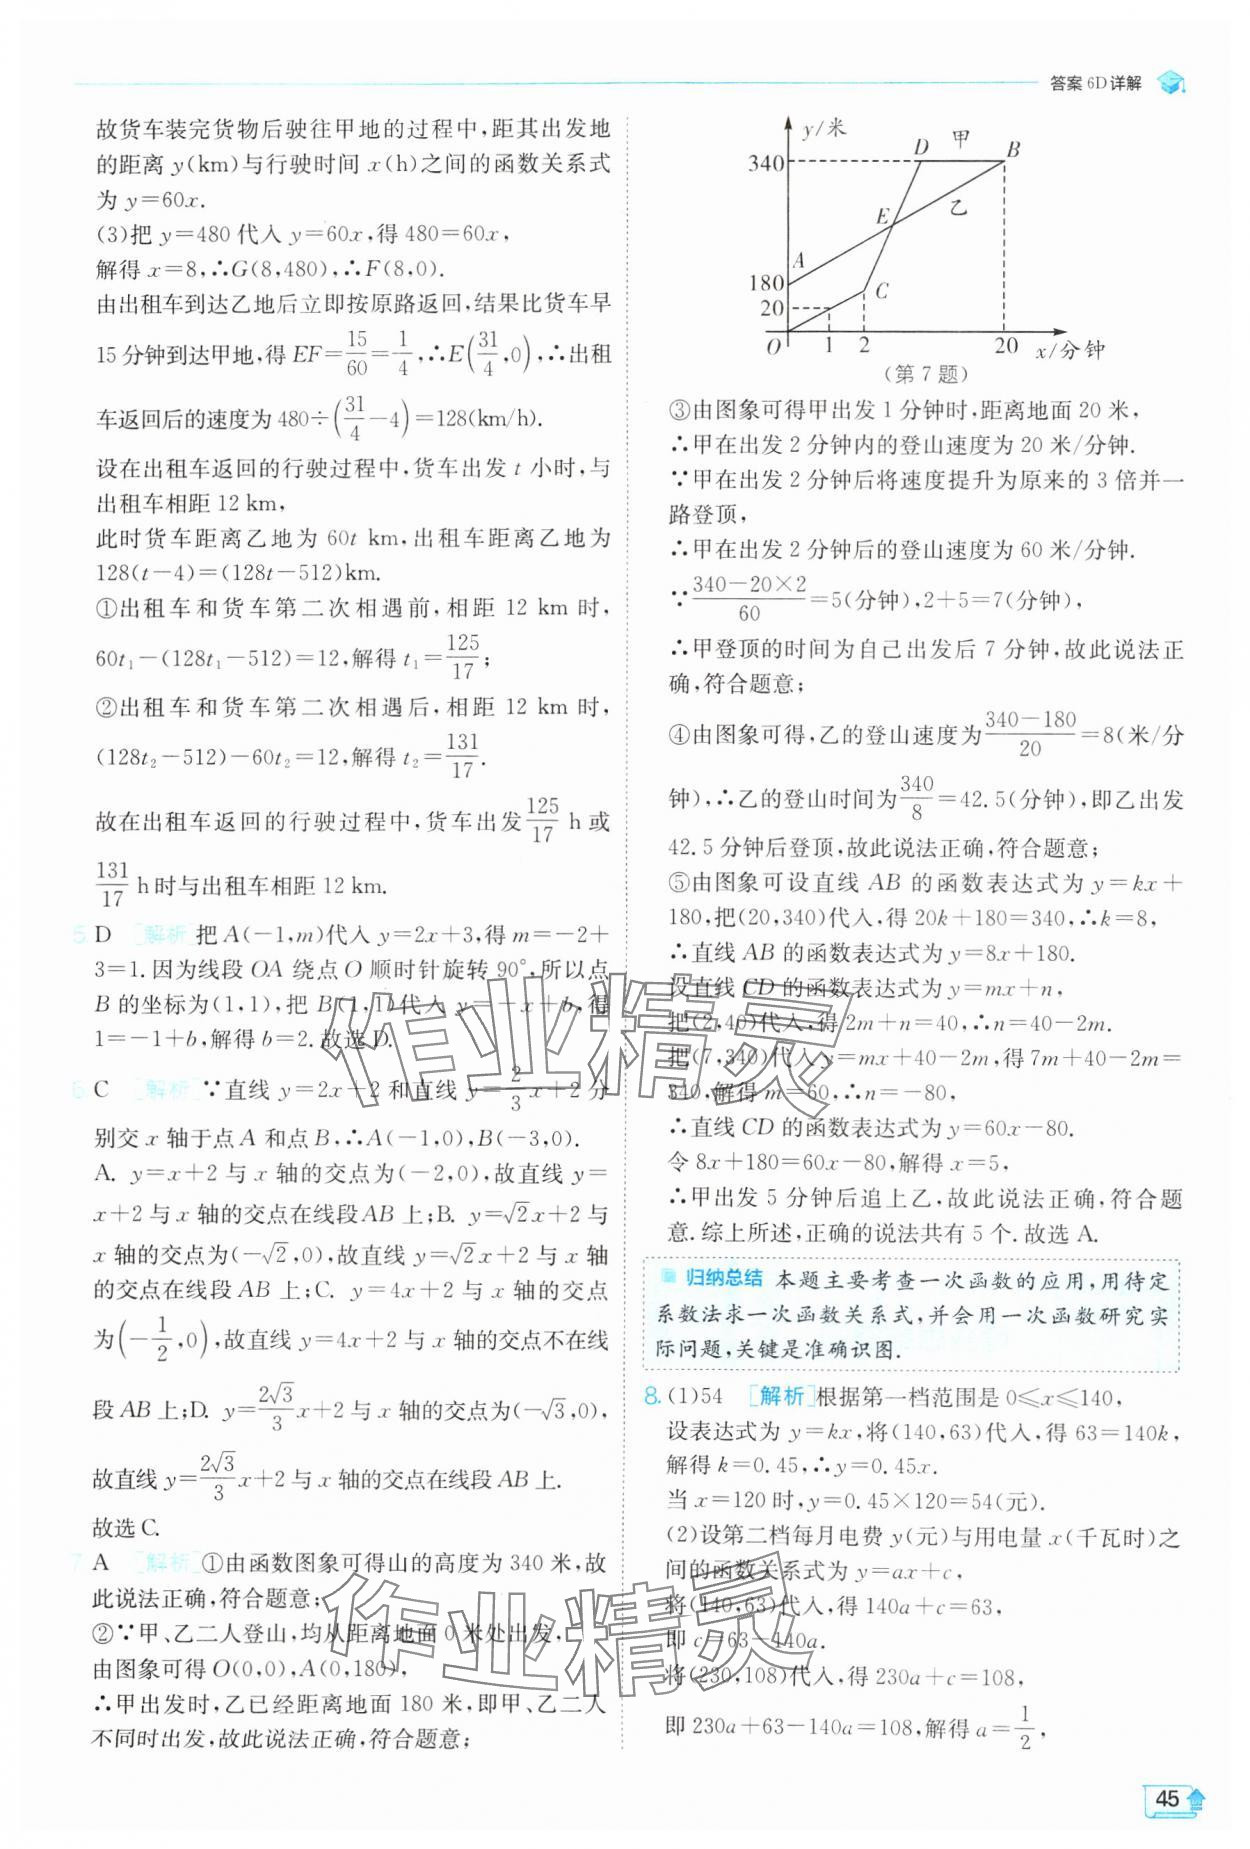 答案 6D详解
故货车装完货物后驶往甲地的过程中,距其出发地
的距离 y(km)与行驶时间 x(h)之间的函数关系式
为 y=60x.
(3)把 y=480 代入 y=60x,得 480=60x,
解得 x=8,∴G(8,480),∴F(8,0).
由出租车到达乙地后立即按原路返回,结果比货车早
15分钟到达甲地,得 EF=15/60=1/4,∴E(31/4,0),∴出租
车返回后的速度为 480÷(31/4-4)=128(km/h).
设在出租车返回的行驶过程中,货车出发 t 小时,与
出租车相距 12 km,
此时货车距离乙地为 60t km,出租车距离乙地为
128(t-4)=(128t-512)km.
①出租车和货车第二次相遇前,相距 12 km 时,
60t₁-(128t₁-512)=12,解得 t₁=125/17;
②出租车和货车第二次相遇后,相距 12 km 时,
(128t₂-512)-60t₂=12,解得 t₂=131/17.
故在出租车返回的行驶过程中,货车出发125/17 h或
131/17 h时与出租车相距 12 km.
5. D [解析]把 A(-1,m)代入 y=2x+3,得 m=-2+
3=1.因为线段 OA 绕点 O 顺时针旋转 90°,所以点
B 的坐标为(1,1),把 B(1,1)代入 y=-x+b,得
1=-1+b,解得 b=2.故选 D.
6. C [解析]∵直线 y=2x+2 和直线 y=2/3x+2 分
别交 x 轴于点 A 和点 B,∴A(-1,0),B(-3,0).
A. y=x+2 与 x 轴的交点为(-2,0),故直线 y=
x+2 与 x 轴的交点在线段AB 上;B. y=√2x+2 与
x 轴的交点为(-√2,0),故直线 y=√2x+2 与 x 轴
的交点在线段 AB 上;C. y=4x+2 与 x 轴的交点
为(-1/2,0),故直线 y=4x+2 与 x 轴的交点不在线
段 AB 上;D. y=2√3/3x+2 与 x 轴的交点为(-√3,0),
故直线 y=2√3/3x+2 与 x 轴的交点在线段 AB 上.
故选 C.
7. A [解析]①由函数图象可得山的高度为 340 米,故
此说法正确,符合题意;
②∵甲、乙二人登山,均从距离地面 0 米处出发,
由图象可得 O(0,0),A(0,180),
∴甲出发时,乙已经距离地面 180 米,即甲、乙二人
不同时出发,故此说法正确,符合题意;
y/米
D 甲 B
340
E 乙
A
180
C
20
O 1 2 20 x/分钟
(第 7 题)
③由图象可得甲出发 1 分钟时,距离地面 20 米,
∴甲在出发 2 分钟内的登山速度为 20 米/分钟.
∵甲在出发 2 分钟后将速度提升为原来的 3 倍并一
路登顶,
∴甲在出发 2 分钟后的登山速度为 60 米/分钟.
∵(340-20×2)/60=5(分钟),2+5=7(分钟),
∴甲登顶的时间为自己出发后 7 分钟,故此说法正
确,符合题意;
④由图象可得,乙的登山速度为(340-180)/20=8(米/分
钟),∴乙的登山时间为340/8=42.5(分钟),即乙出发
42.5 分钟后登顶,故此说法正确,符合题意;
⑤由图象可设直线 AB 的函数表达式为 y=kx+
180,把(20,340)代入,得 20k+180=340,∴k=8,
∴直线 AB 的函数表达式为 y=8x+180.
设直线 CD 的函数表达式为 y=mx+n,
把(2,40)代入,得 2m+n=40,∴n=40-2m.
把(7,340)代入y=mx+40-2m,得 7m+40-2m=
340,解得 m=60,∴n=-80,
∴直线 CD 的函数表达式为 y=60x-80.
令 8x+180=60x-80,解得 x=5,
∴甲出发 5 分钟后追上乙,故此说法正确,符合题
意.综上所述,正确的说法共有 5 个.故选 A.
归纳总结 本题主要考查一次函数的应用,用待定
系数法求一次函数关系式,并会用一次函数研究实
际问题,关键是准确识图.
8. (1)54 [解析]根据第一档范围是 0≤x≤140,
设表达式为 y=kx,将(140,63)代入,得 63=140k,
解得 k=0.45,∴y=0.45x.
当 x=120 时,y=0.45×120=54(元).
(2)设第二档每月电费 y(元)与用电量 x(千瓦时)之
间的函数关系式为 y=ax+c,
将(140,63)代入,得 140a+c=63,
即 c=63-140a.
将(230,108)代入,得 230a+c=108,
即 230a+63-140a=108,解得 a=1/2,
作业精灵
作业精灵
45